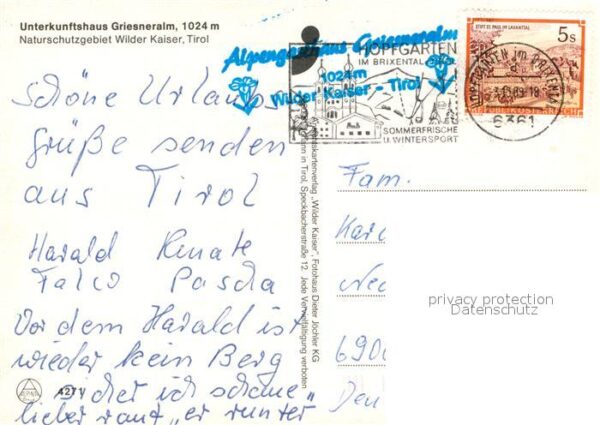 Unterkunftshaus Griesneralm, 1024 m
Naturschutzgebiet Wilder Kaiser, Tirol
Alpengasthaus Griesneralm
1024 m
Wilder Kaiser - Tirol
HOPFGARTEN
IM BRIXENTAL
SOMMERFRISCHE
U. WINTERSPORT
STIFT ST. PAUL IM LAVANTTAL
5s
6361
Schöne Urlaubs
grüße senden
aus Tirol
Harald Renate
Falco Pascha
Vor dem Harald ist
wieder kein Berg
sicher ich schaue
lieber rauf „er runter
4271
Ansichtskartenverlag „Wilder Kaiser“, Fotohaus Dieter Jöchler KG
in Tirol, Speckbacherstraße 12. Jede Vervielfältigung verboten
Fam.
690
Den
privacy protection
Datenschutz